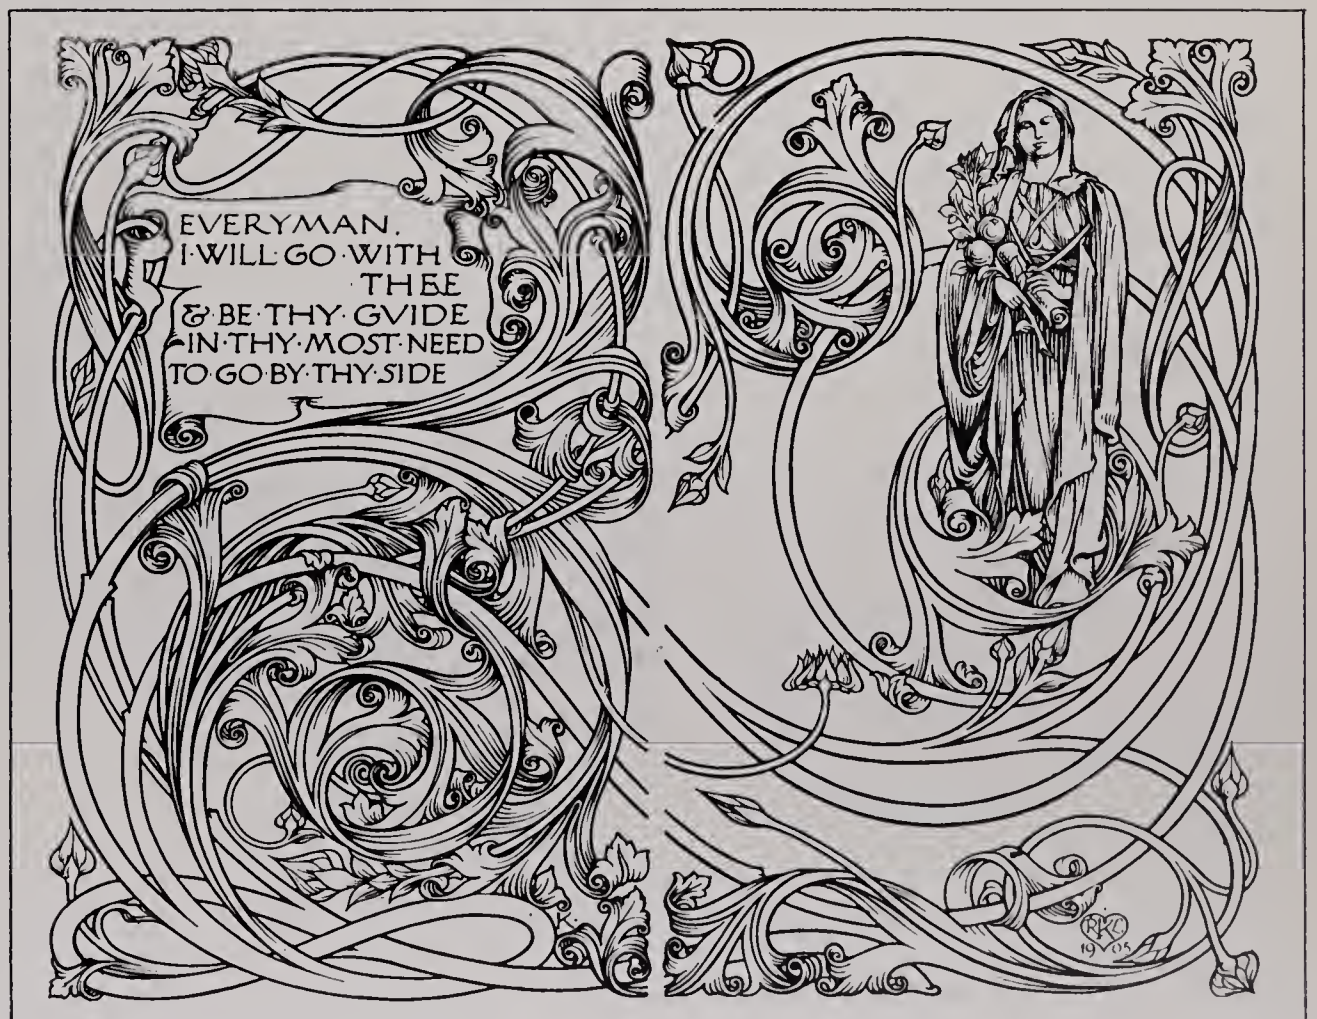 EVERYMAN.
I·WILL·GO·WITH
THEE
& BE·THY·GVIDE
IN·THY·MOST·NEED
TO·GO·BY·THY·SIDE
K.
RKC
19 05